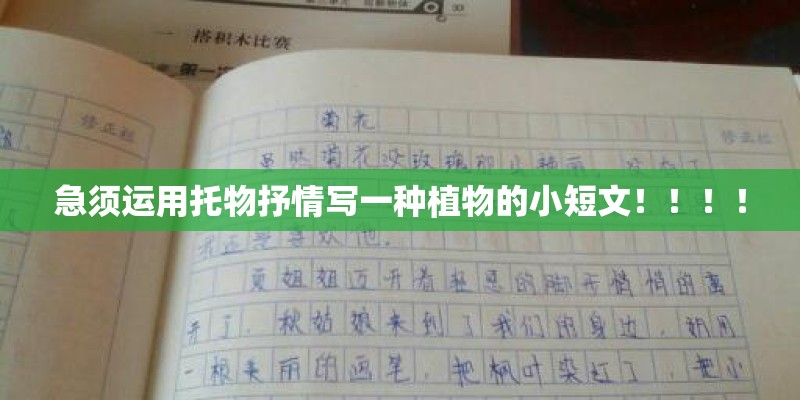 一 搭积木比赛
修正栏
菊花
修正栏
虽然菊花没玫瑰那么艳丽，没有
急须运用托物抒情写一种植物的小短文！！！！
喜欢他.
夏姐姐迈开着轻盈的脚步悄悄的离
开了，秋姑娘来到了我们的身边，她用
一根美丽的画笔，把枫叶染红了，把小